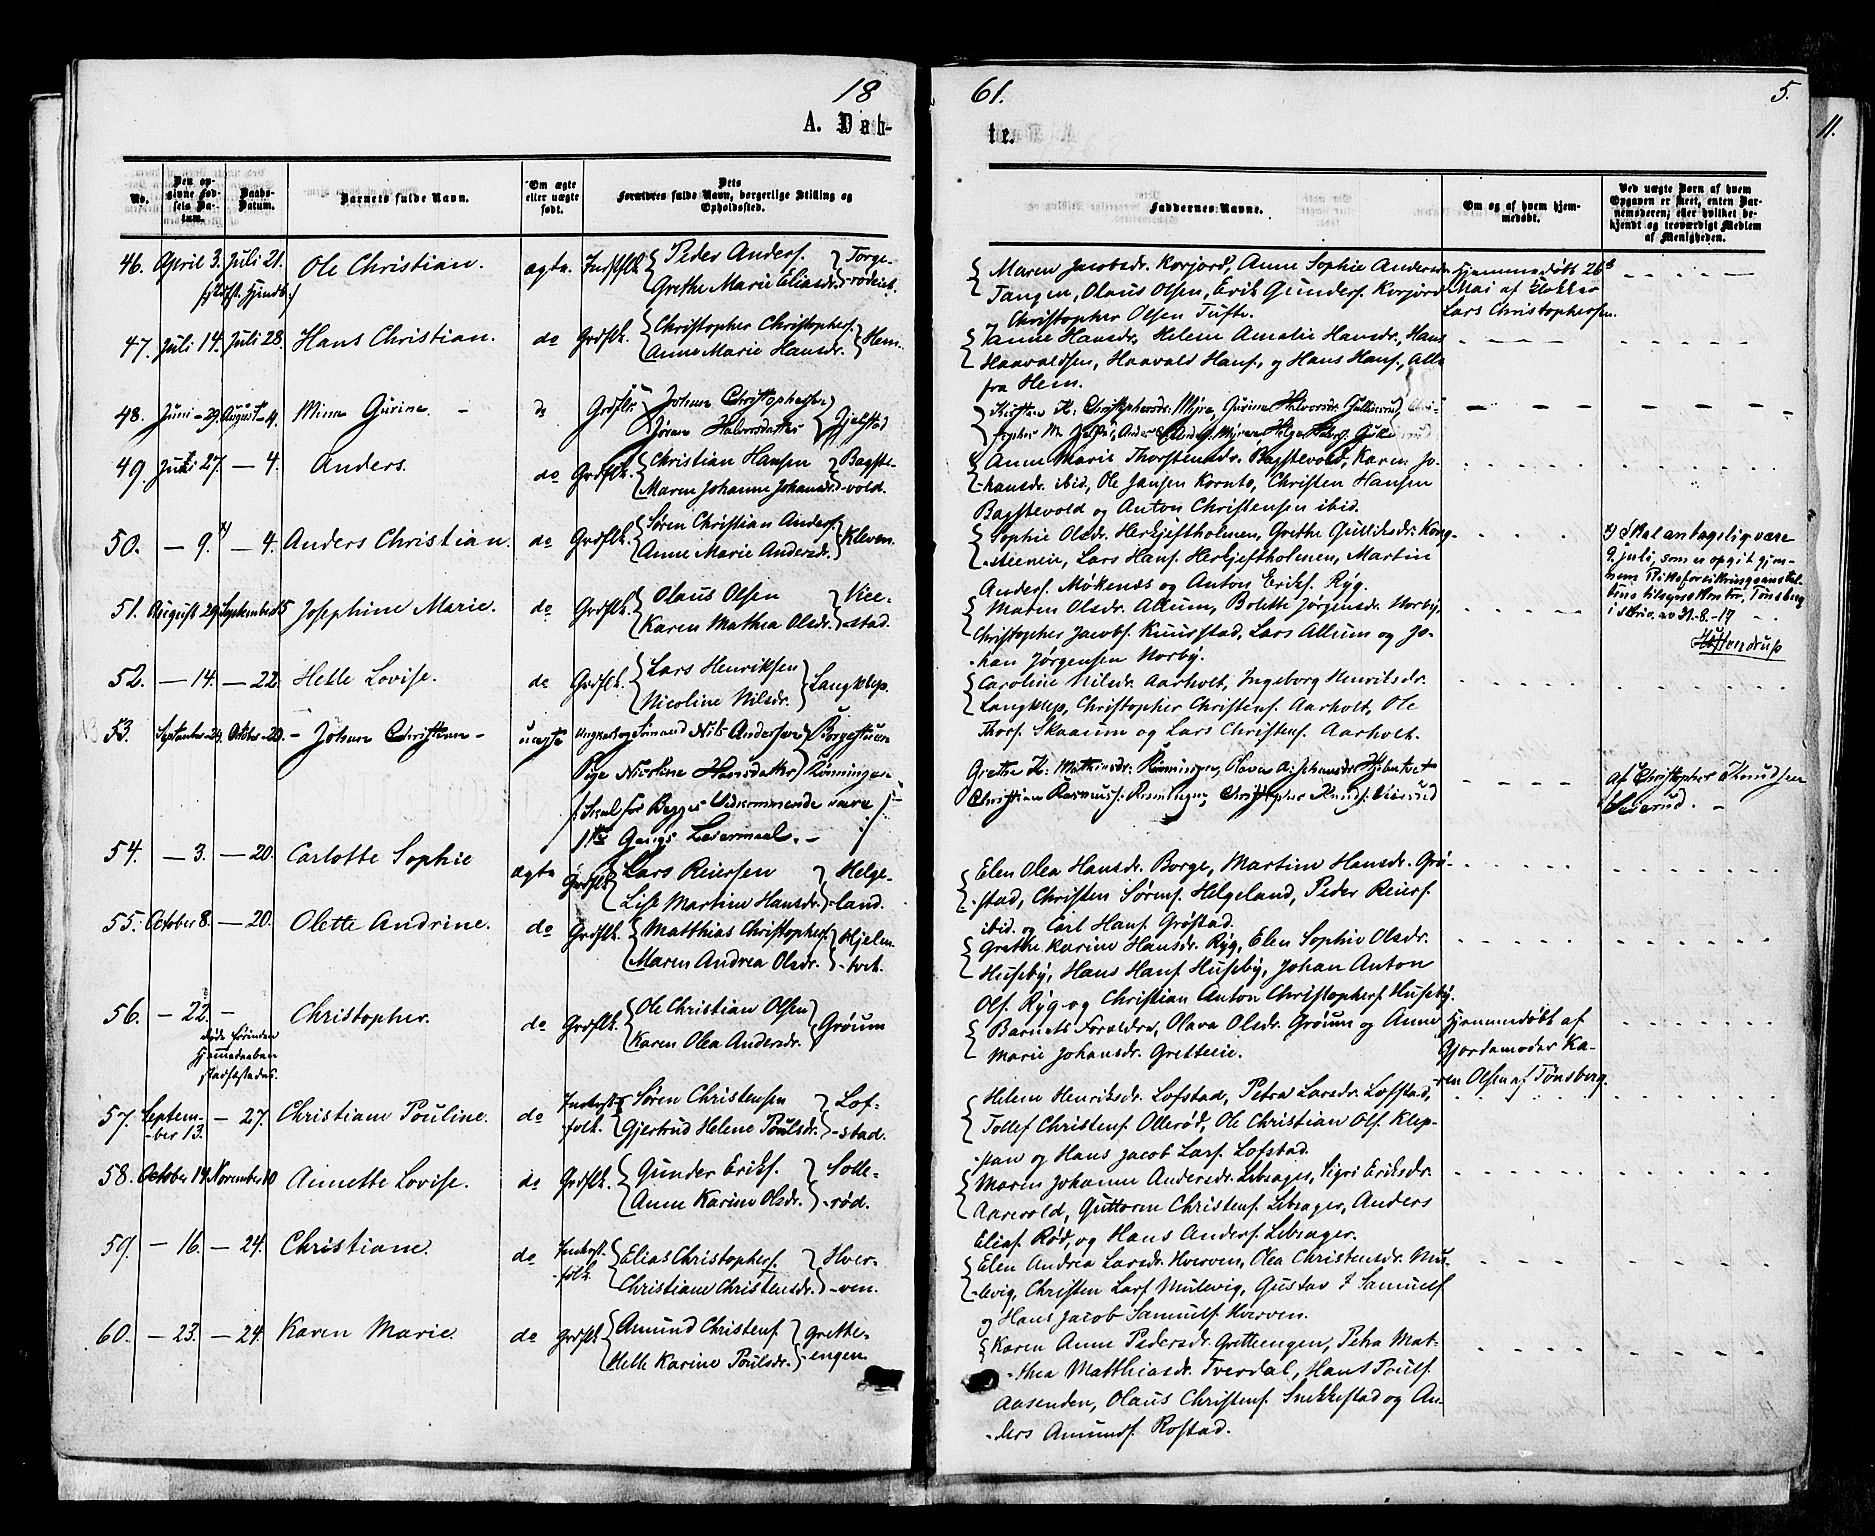 18
61.
5.
11.
A. Døb-
te.
No.
Den op-
givne Fød-
sels Da-
tum.
Daabs-
Datum.
Barnets fulde Navn.
Om ægte
eller uægte
født.
Dets
Forældres fulde Navn, borgerlige Stilling og
Opholdssted.
Faddernes Navne.
Om og af hvem hjem-
medøbt.
Ved uægte Børn af hvem
Opgaven er skeet, enten Bar-
nemoderen, eller hvilket be-
kjendt og troværdigt Medlem
af Menigheden.
46. April 3. Juli 21. Ole Christian. ægte. Indstflk. Peder Anders. Torge-
Grethe Marie Eliasdr. -rødeiet.
Maren Jacobsdr. Korjord, Anne Sophie Andersdr.
Tangen, Olaus Olsen, Erik Gunders. Korjord
Christopher Olsen Tufte.
Hjemmedøbt 26d
Mai af Klokker
Lars Christophersen.
47. Juli 14. Juli 28. Hans Christian. do Grdflk. Christopher Christophers. Hem.
Anne Marie Hansdr.
Hansdr. Helene Amalie Hansdr., Hans
Haavaldsen, Haavald Hans. og Hans Hans. Alle
fra Hem.
48. Juni - 29. August - 4. Mina Gurine. do Grdflk. Johan Christophersen
Jørane Halvorsdatter Gjelstad
Kirsten K: Christophersdr: Myre, Gurine Halvorsdr. Gullicsrud,
49. Juli 27. - 4. Anders. do Grdflk. Christian Hansen Bagste-
Maren Johanne Johansdr. -vold.
Anne Marie Thorstensdr. Bagstevold, Karen Jo-
hansdr. ibid, Ole Jansen Kornto, Christen Hansen
Bagstevold og Anton Christensen ibid.
50. - 9. x) - 4. Anders Christian. do Grdflk. Søren Christian Anders. Kleven.
Anne Marie Andersdr.
Sophie Olsdr. Herkjeftholmen, Grethe Gullicksdr. Kong-
-steenen, Lars Hans. Herkjeftholmen, Martin
Anders. Møkenes og Anton Eriks. Ryg.
x) Skal antagelig være
9. juli, som er opgit gjen-
nem Riksforsikringsanstal-
tens tilsynskontor, Tønsberg
i skriv. av 31-8-17
51. August 29. September 15 Josephine Marie. do Grdflk. Olaus Olsen Vice-
Karen Mathea Olsdr. -stad.
Maren Olsdr. Allum, Bolette Jørgensdr. Norby,
Christopher Jacobs. Knurstad, Lars Allum og Jo-
-han Jørgensen Norby.
52. - 14. - 22. Helle Lovise. do Grdflk. Lars Henriksen Langklep.
Nicoline Nilsdr.
Caroline Nilsdr. Aarholt, Ingeborg Henriksdr.
Langklep, Christopher Christens. Aarholt, Ole
Thors. Skaaum og Lars Christens. Aarholt.
53. September - 24. October - 20. - Johan Christian - uægte Ungkarl og Sømand Nils Andersen Borgestuen
Pige Nicoline Hansdatter Rønningen
Skal for Begges Vedkommende være
1ste Gangs Leiermaal. -
Grethe K: Mathisdr: Rønningen, Olava A: Johansdr Hjelmtvet
Christian Rasmuss: Rønningen, Christopher Knuds. Leierud
af Christopher Knudsen
Leierud. -
54. - 3. - 20. Carlotte Sophie ægte Grdflk Lars Reiersen Helge-
Lise Martine Hansdr. -land.
Elen Olea Hansdr. Borge, Martine Hansdr. Grø-
-stad, Christen Sørens. Helgeland, Peder Reiers.
ibid. og Carl Hans. Grøstad.
55. October 8. - 20. Olette Andrine. do Grdflk. Matthias Christophers. Hjelm-
Maren Andrea Olsdr. -tvet.
Grethe Karine Hansdr. Ryg, Elen Sophie Olsdr.
Huseby, Hans Hans. Huseby, Johan Anton
Ols. Ryg og Christian Anton Christophers. Huseby.
56. - 22. - Christopher. do Grdflk. Ole Christian Olsen Grøum
Karen Olea Andersdr.
døde førinden
Hjemmedaaben
stadfæstedes.
Barnets Forældre, Olava Olsdr. Grøum og Anne
Marie Johansdr. Gretteeie.
Hjemmedøbt af
Gjordemoder Ka-
ren Olsen af Tønsberg.
57. Septem-
-ber 13. - 27. Christiane Pouline. do Inderst-
folk. Søren Christensen Lof-
Gjertrud Helene Poulsdr. -stad.
Helene Henriksdr. Lofstad, Petra Larsdr. Lofstad,
Tollef Christens. Ollerød, Ole Christian Ols. Klep-
pan og Hans Jacob Lars. Lofstad.
58. October 14 November 10 Annette Lovise. do Grdflk. Gunder Eriks. Solle-
Anne Karine Olsdr. -rød.
Maren Johanne Andersdr. Lebsager, Sigri Eriksdr.
Aarevold, Guttorm Christens. Lebsager, Anders
Elias. Rød, og Hans Anders. Lebsager.
59. - 16. - 24. Christiane. do Inderst.
-folk. Elias Christophers. Hver-
Christiane Christensdr. -ven.
Elen Andrea Larsdr. Hverven, Olea Christensdr. Mul-
-levig, Christen Lars. Mullevig, Gustav F Samuels.
og Hans Jacob Samuels. Hverven.
60. - 23. - 24. Karen Marie. do Grdflk Amund Christens. Grette-
Helle Karine Poulsdr. -engen.
Karen Anne Pedersdr. Grettengen, Petra Mat-
-thea Matthiasdr. Tverdal, Hans Pouls.
Aasenden, Olaus Christens. Snekkestad og An-
-ders Amunds. Rostad.